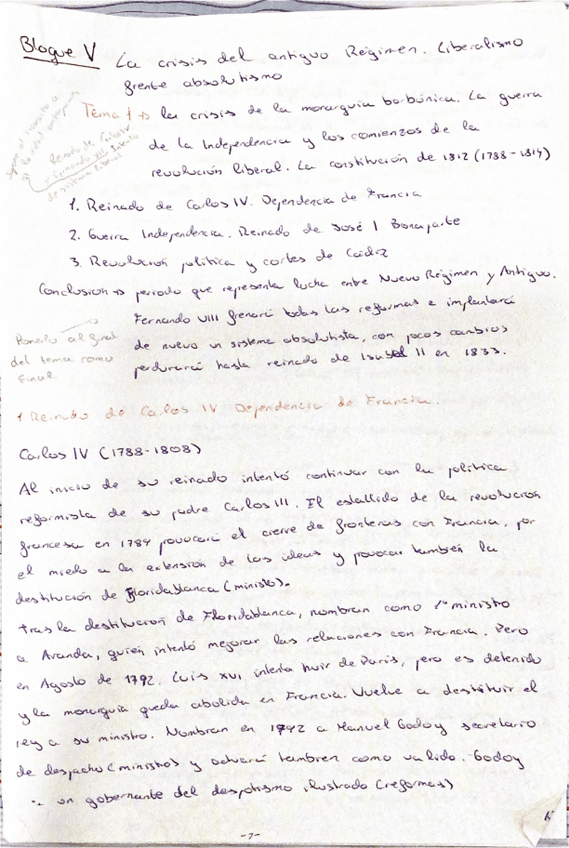 Bloque V La crisis del antiguo Régimen. Liberalismo
frente absolutismo
Tema 1 → la crisis de la monarquía borbónica. La guerra
de la Independencia y los comienzos de la
revolución liberal. La constitución de 1812 (1788-1814)
Reinado de Carlos IV
y Fernando VII. Intento
de sistema liberal
1. Reinado de Carlos IV. Dependencia de Francia
2. Guerra Independencia. Reinado de José I Bonaparte
3. Revolución política y cortes de Cádiz
Conclusion → periodo que representa lucha entre Nuevo Régimen y Antiguo.
Fernando VIII frenará todas las reformas e implantará
de nuevo un sistema absolutista, con pocos cambios
perdurará hasta reinado de Isabel II en 1833.
Ponerlo al final
del tema como
final
1 Reinado de Carlos IV Dependencia de Francia.
Carlos IV (1788-1808)
Al inicio de su reinado intentó continuar con la política
reformista de su padre Carlos III. El estallido de la revolución
francesa en 1789 provocará el cierre de fronteras con Francia, por
el miedo a la extensión de las ideas y provocar también la
destitución de Floridablanca (ministo).
tras la destitución de Floridablanca, nombran como 1º ministro
a Aranda, quién intentó mejorar las relaciones con Francia. Pero
en Agosto de 1792. Luis XVI intenta huir de París, pero es detenido
y la monarquía queda abolida en Francia. Vuelve a destituir el
rey a su ministro. Nombran en 1792 a Manuel Godoy secretario
de despacho (ministros) y actuará tambien como valido. Godoy
un gobernante del despotismo ilustrado (reformas)
-7-